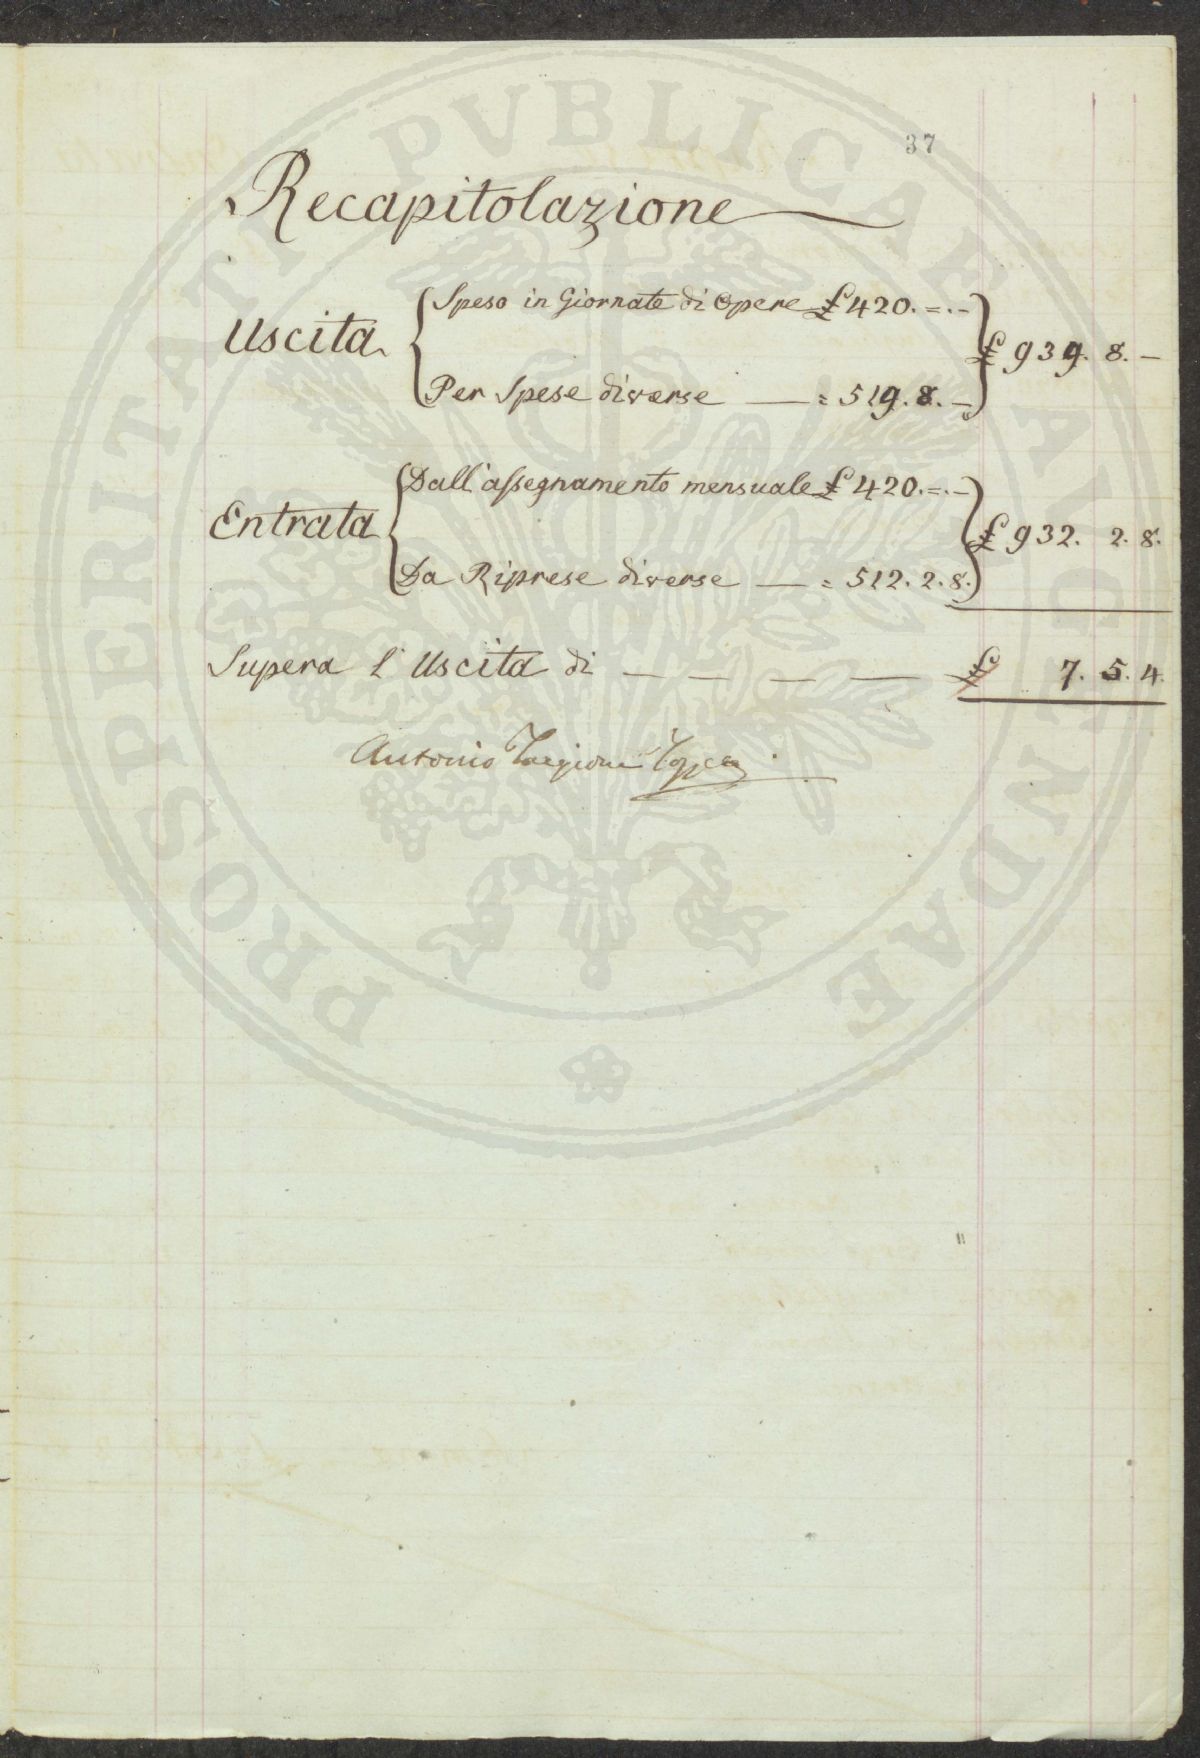 37
Recapitolazione
Uscita
Speso in Giornate di Opere £ 420. = . -
£ 939. 8. -
Per Spese diverse — = 519. 8. -
Entrata
Dall'assegnamento mensuale £ 420. = . -
£ 932. 2. 8.
Da Riprese diverse — = 512. 2. 8.
Supera l'Uscita di — — — — £ 7. 5. 4.
Antonio Targioni Tozzetti
PROSPERITATI PVBLICAE AVGENDAE